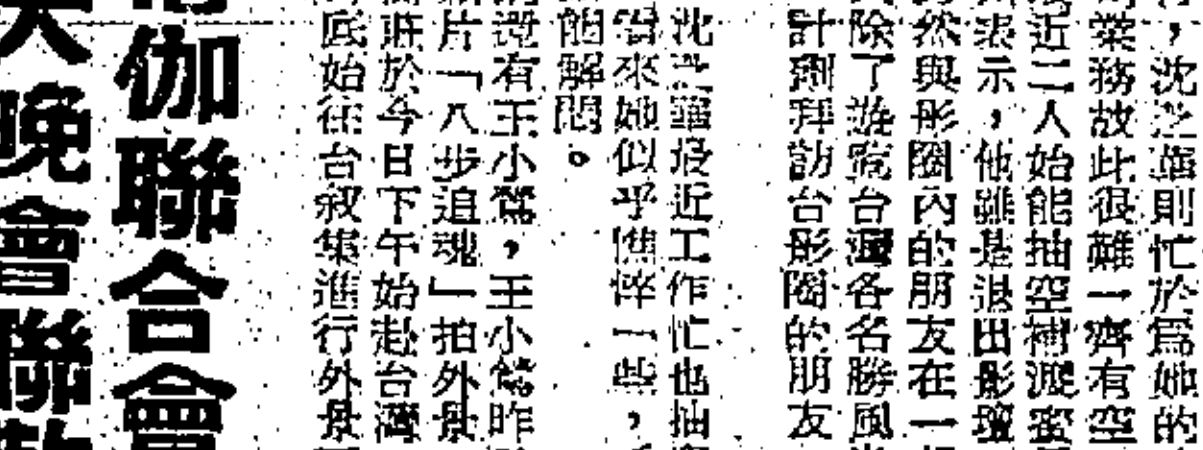 ，沈之華則忙於爲她的
業務故此很難一齊有空
近二人始能抽空補渡蜜
表示，他雖是退出影壇
然與影圈內的朋友在一
除了遊覽台灣各名勝風
計劃拜訪台影圈的朋友
沈之華最近工作忙也抽
看來她似乎憔悴一些，
解悶。
還有王小鶯，王小鶯昨
片「八步追魂」拍外景
莊於今日下午始赴台灣
底始往台叙集進行外景
伽聯合會
大晚會聯歡